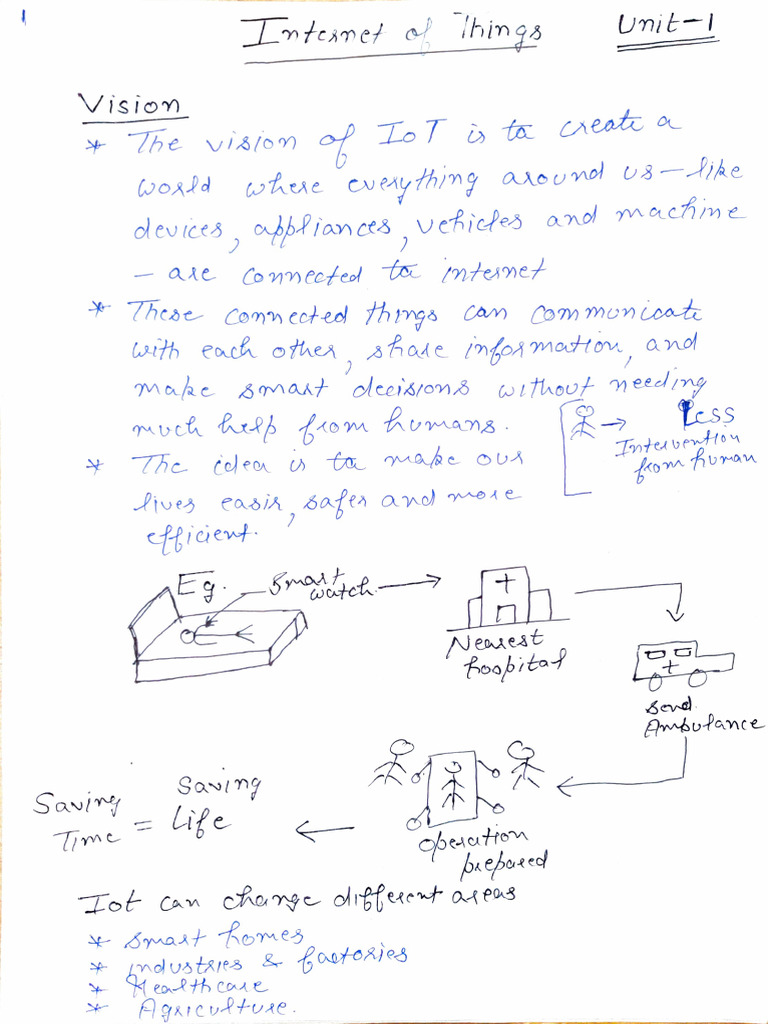 1
Internet of Things Unit-1
Vision
* The vision of IoT is to create a
world where everything around us - like
devices, appliances, vehicles and machine
- are connected to internet
* These connected things can communicate
with each other, share information, and
make smart decisions without needing
much help from humans.
→ Less
Intervention
from human
* The idea is to make our
lives easir, safer and more
efficient.
Eg. Smart
watch
Nearest
hospital
Send
Ambulance
Operation
prepared
Saving Saving
Time = Life
Iot can change different areas
* Smart homes
* industries & factories
* Healthcare
* Agriculture.